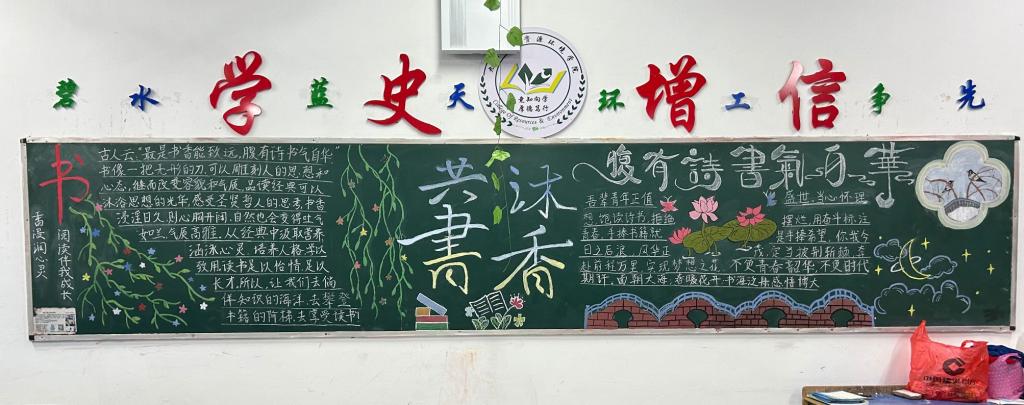 碧水学蓝史天环增工信争先
资源环境学院
爱知向学
厚德笃行
College Of Resources & Environment
书
书浸润心灵
阅读伴我成长
古人云:"最是书香能致远,腹有诗书气自华"
书像一把无形的刀,可以雕刻人的思想和
心态,继而改变容貌和气质,品读经典可以
沐浴思想的光华,感受圣贤哲人的思考书香
浸淫日久,则心胸开阔,自然也会变得壮气
如兰,气质高雅,从经典中汲取营养
涵泳心灵 培养人格,学以
致用,读书足以怡情,足以
长才,所以,让我们去徜
徉知识的海洋,去攀登
书籍的阶梯,去享受读书
共沐
書香
腹有詩書氣自華
吾辈青年正值
盛世,当心怀理
想 饱读诗书,拒绝
摆烂,用奋斗标注
青春,手捧书籍就
是手捧希望,你我今
日之后浪
定当披荆斩棘,奔
赴前程万里,实现梦想之花 不负青春韶华,不负时代
期许,面朝大海,春暖花开,书海泛舟,感悟博大